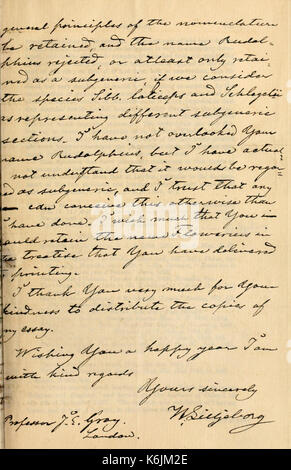 general principles of the nomenclature
be retained, and the name Rudol-
phius rejected, or at least only retai-
ned as a subgeneric, if we consider
the species Sibb. laticeps and Schlegelii
as representing different subgeneric
sections. I have not overlooked Your
name Rudolphius, but I have actual-
not understand that it would be regar
d as subgeneric, and I trust that any
can conceive this otherwise than
I have done. I wish much that You in
ould retain the name Flowerius in
e treatise that You have delivered
printing.
I thank You very much for Your
kindness to distribute the copies of
my essay.
Wishing You a happy year I am
with kind regards
Yours sincerely
W Lilljeborg
Professor J. E. Gray.
London.
alamy
Image ID: K6JM2E
www.alamy.com